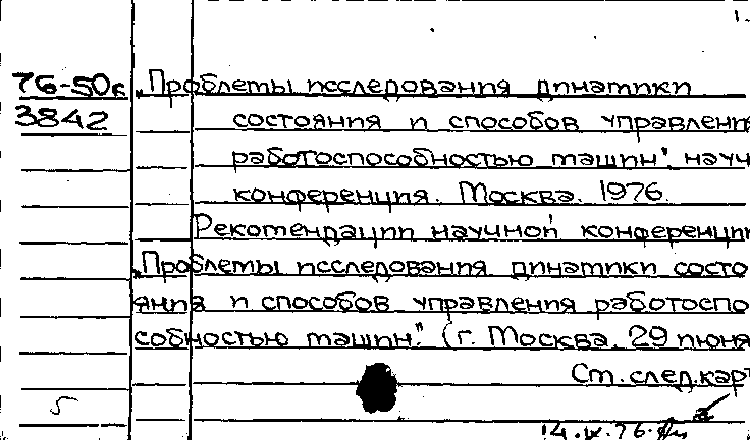 76-50к „Проблемы исследования динамики
3842 состояния и способов управлени
работоспособностью машин". науч
конференция. Москва. 1976.
Рекомендации научной конференции
„Проблемы исследования динамики состо
яния и способов управления работоспо
собностью машин." (г. Москва, 29 июня
См. след. карт
5
14.IX.76.